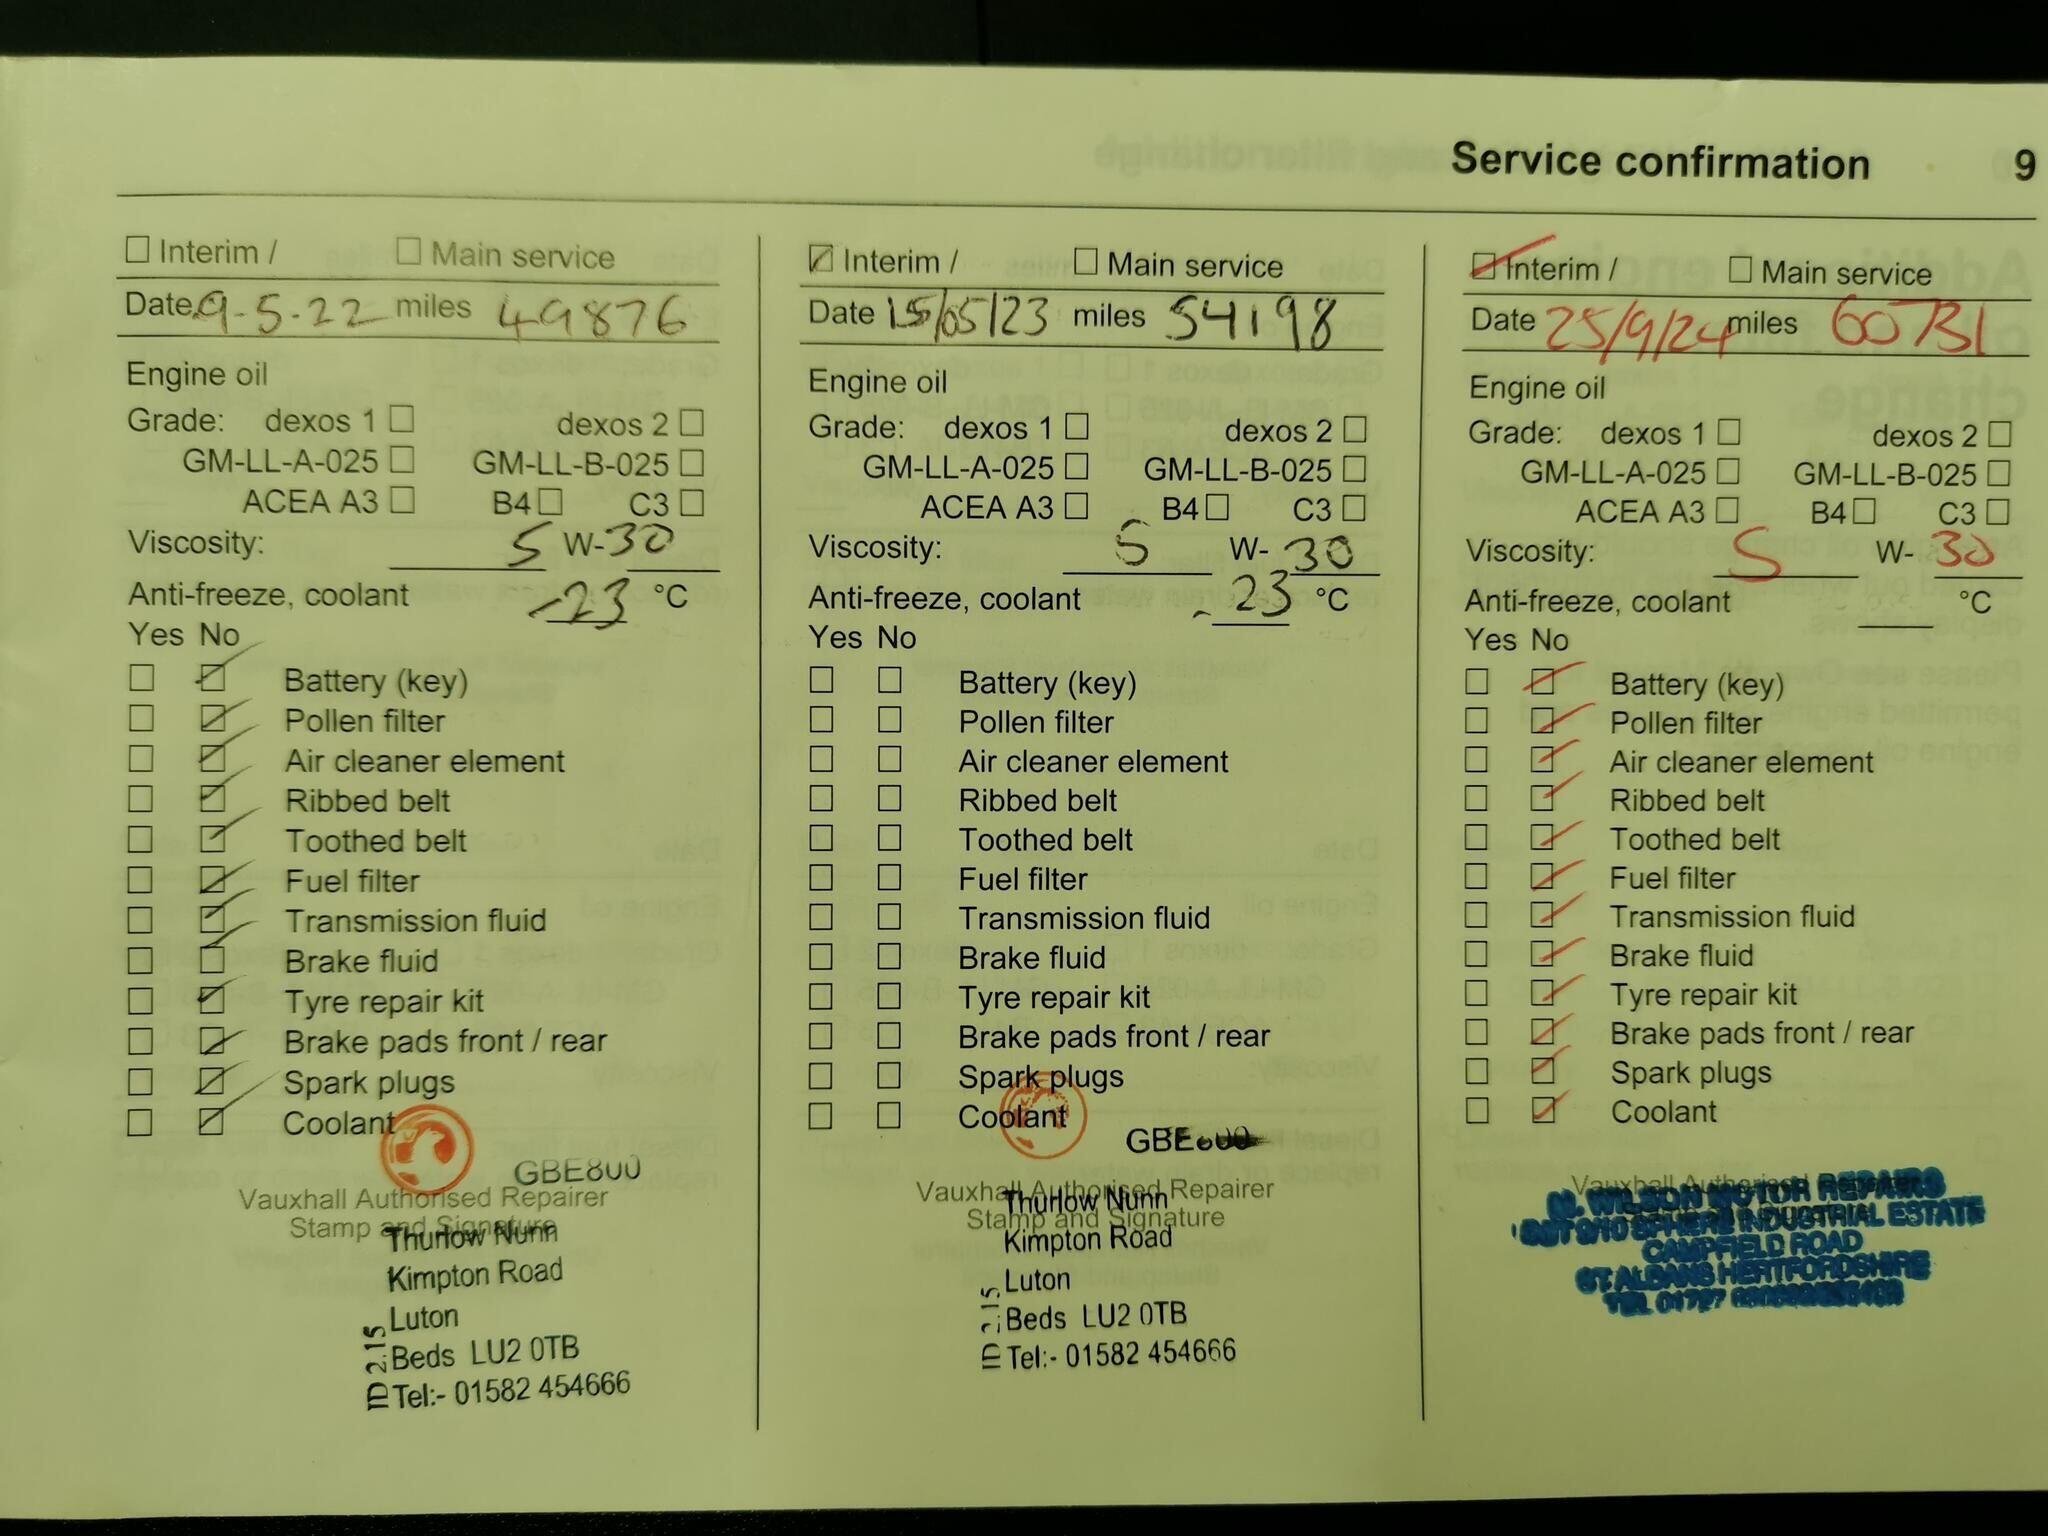 Service confirmation 9
Interim / Main service
Date 9-5-22 miles 49876
Engine oil
Grade: dexos 1 dexos 2
GM-LL-A-025 GM-LL-B-025
ACEA A3 B4 C3
Viscosity: 5 W-30
Anti-freeze, coolant -23 °C
Yes No
Battery (key)
Pollen filter
Air cleaner element
Ribbed belt
Toothed belt
Fuel filter
Transmission fluid
Brake fluid
Tyre repair kit
Brake pads front / rear
Spark plugs
Coolant
GBE800
Vauxhall Authorised Repairer
Stamp and Signature
Thurlow Nunn
Kimpton Road
Luton
Beds LU2 0TB
Tel:- 01582 454666
ID 215
Interim / Main service
Date 15/05/23 miles 54198
Engine oil
Grade: dexos 1 dexos 2
GM-LL-A-025 GM-LL-B-025
ACEA A3 B4 C3
Viscosity: 5 W-30
Anti-freeze, coolant -23 °C
Yes No
Battery (key)
Pollen filter
Air cleaner element
Ribbed belt
Toothed belt
Fuel filter
Transmission fluid
Brake fluid
Tyre repair kit
Brake pads front / rear
Spark plugs
Coolant
Vauxhall Authorised Repairer
Stamp and Signature
Thurlow Nunn
Kimpton Road
Luton
Beds LU2 0TB
Tel:- 01582 454666
Interim / Main service
Date 25/9/24 miles 60731
Engine oil
Grade: dexos 1 dexos 2
GM-LL-A-025 GM-LL-B-025
ACEA A3 B4 C3
Viscosity: 5 W-30
Anti-freeze, coolant °C
Yes No
Battery (key)
Pollen filter
Air cleaner element
Ribbed belt
Toothed belt
Fuel filter
Transmission fluid
Brake fluid
Tyre repair kit
Brake pads front / rear
Spark plugs
Coolant
N. WILSON MOTOR REPAIRS
SPHERE INDUSTRIAL ESTATE
CAMPFIELD ROAD
ST ALBANS HERTFORDSHIRE
TEL 01727